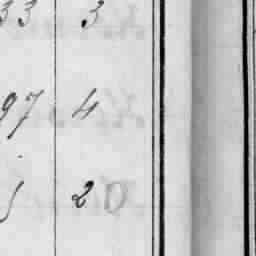 33 3
97 4
2